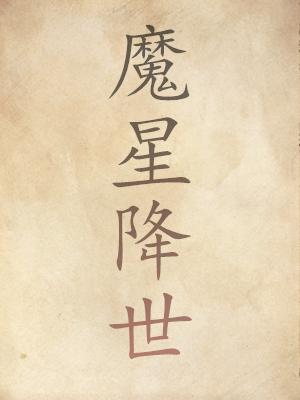 魔星降世